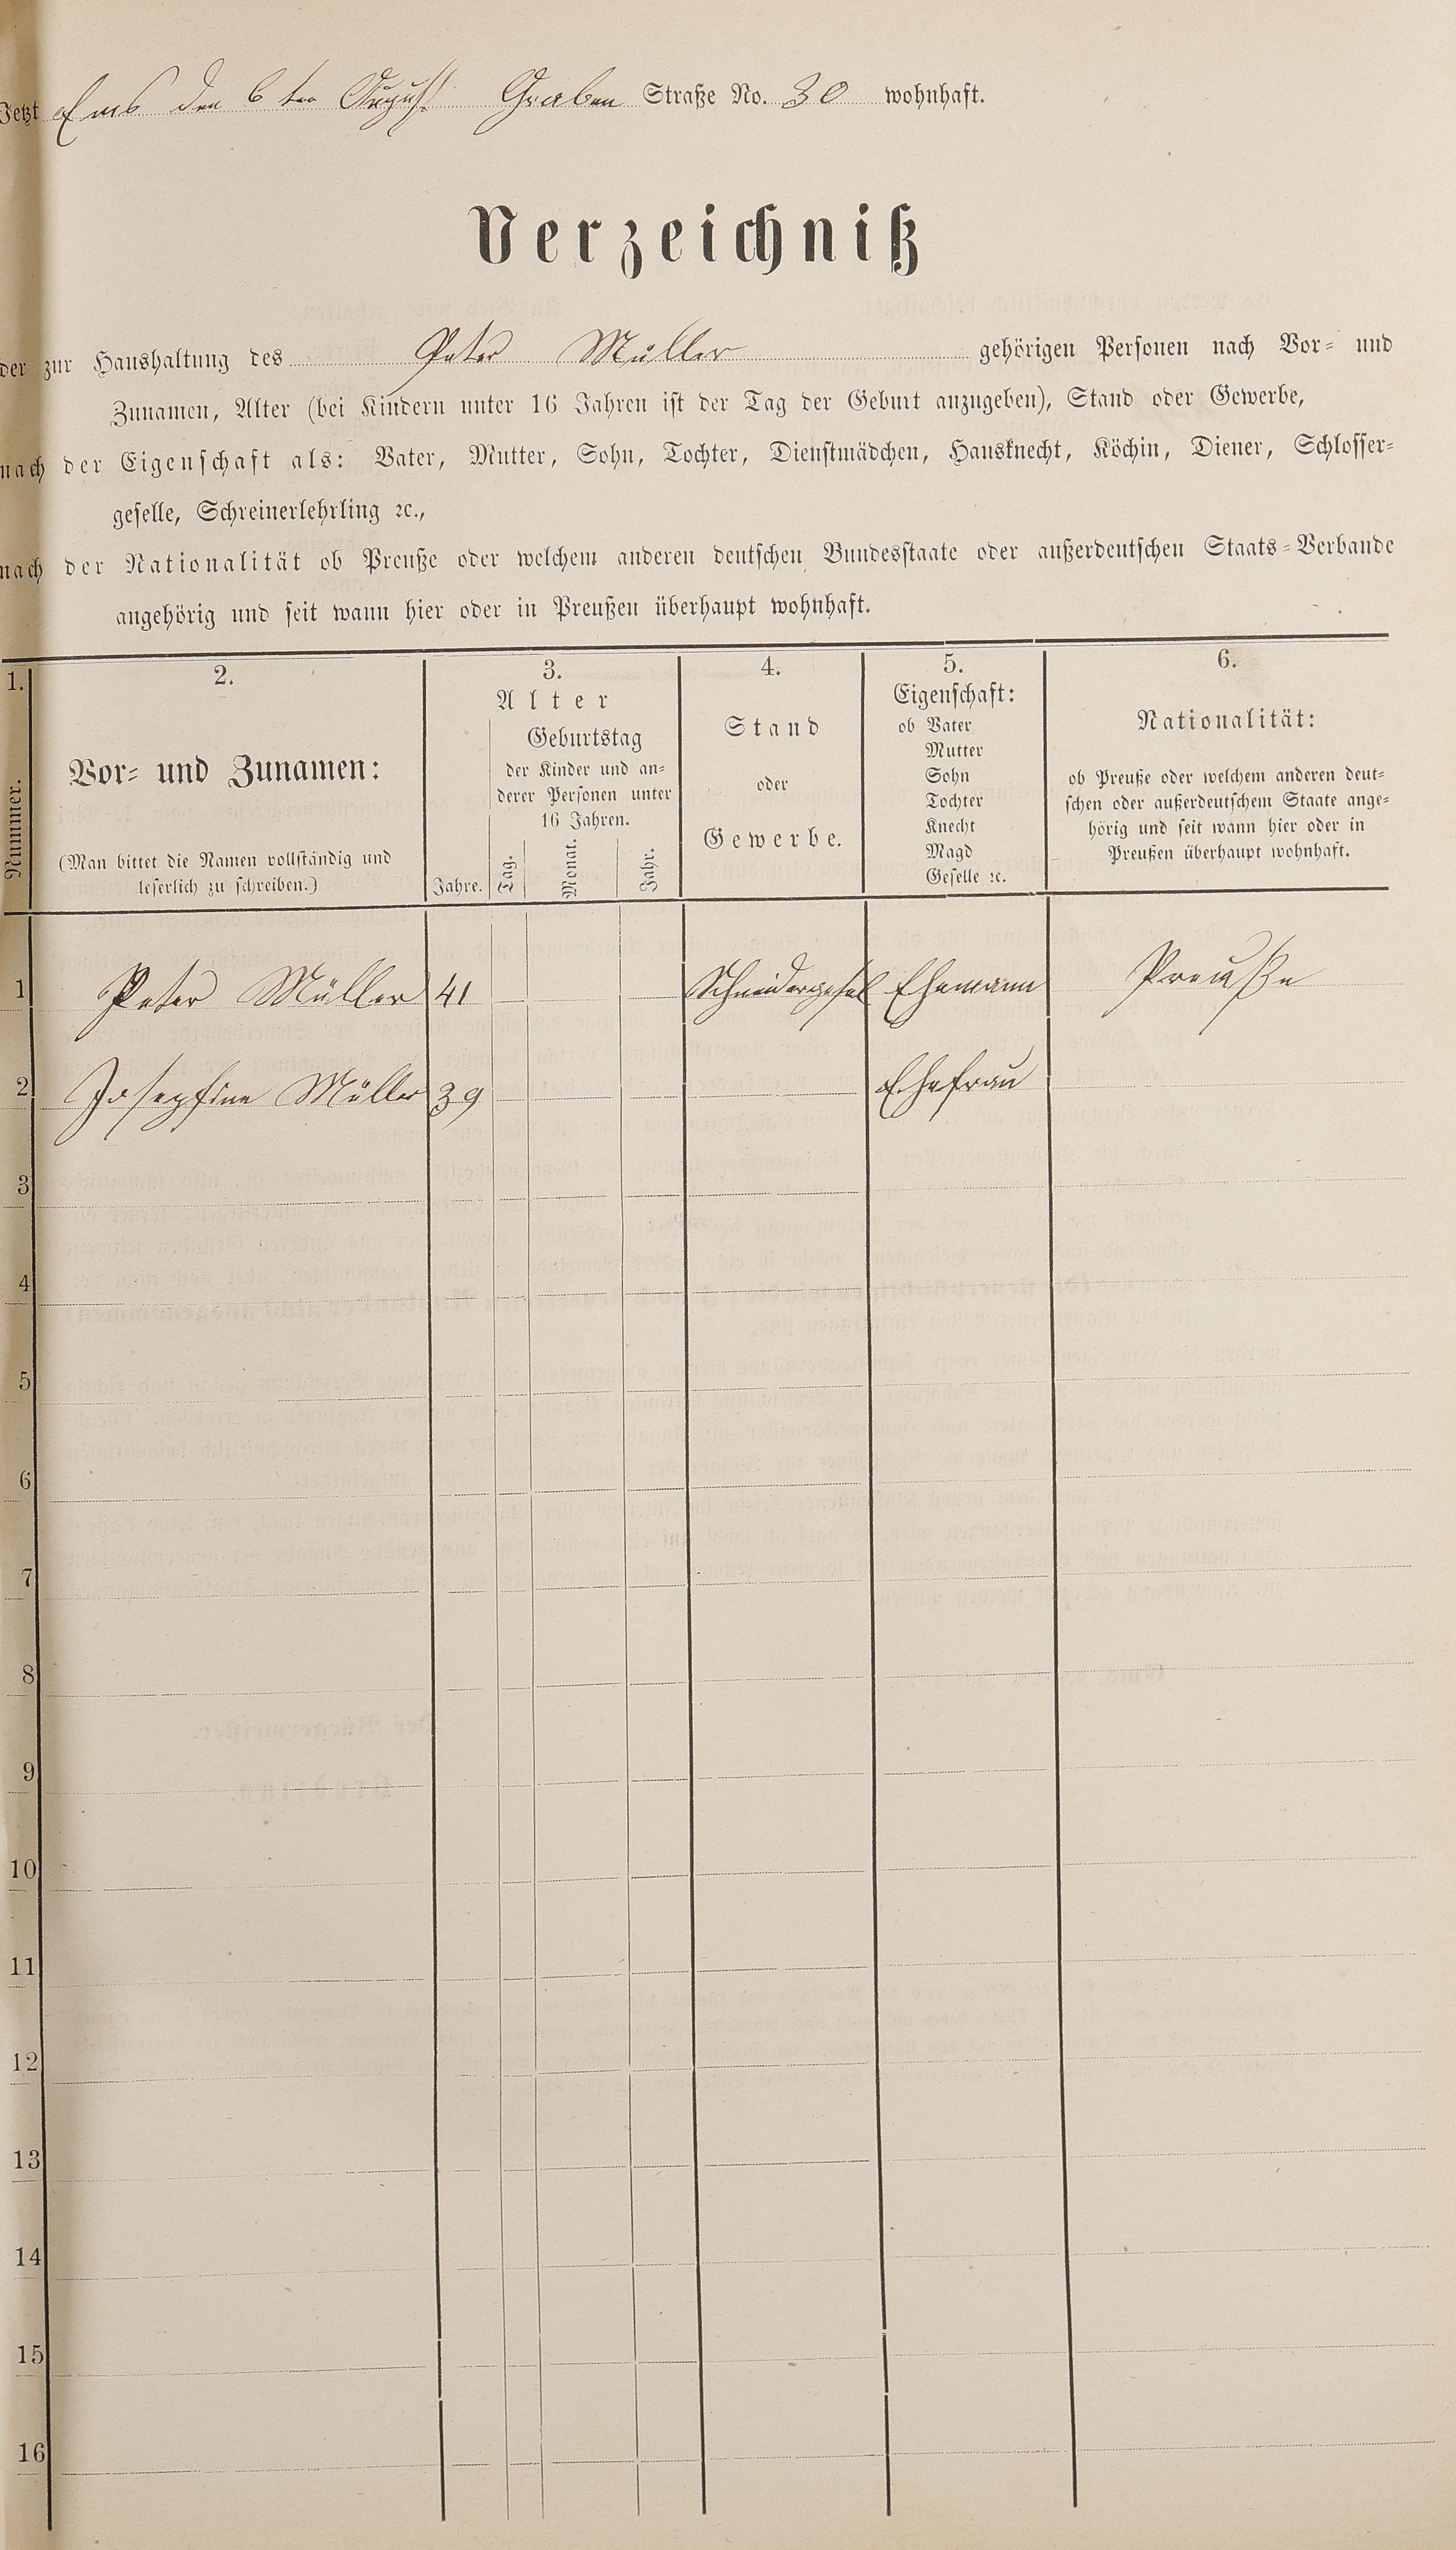 Jetzt Ems den 6ten August Graben Straße No. 30 wohnhaft.
Verzeichniß
der zur Haushaltung des Peter Müller gehörigen Personen nach Vor- und
Zunamen, Alter (bei Kindern unter 16 Jahren ist der Tag der Geburt anzugeben), Stand oder Gewerbe,
nach der Eigenschaft als: Vater, Mutter, Sohn, Tochter, Dienstmädchen, Hausknecht, Köchin, Diener, Schlosser-
geselle, Schreinerlehrling ꝛc.,
nach der Nationalität ob Preuße oder welchem anderen deutschen Bundesstaate oder außerdeutschen Staats-Verbande
angehörig und seit wann hier oder in Preußen überhaupt wohnhaft.
1.
Nummer.
2.
Vor- und Zunamen:
(Man bittet die Namen vollständig und
leserlich zu schreiben.)
3.
Alter
Geburtstag
der Kinder und an-
derer Personen unter
16 Jahren.
Jahre. Tag. Monat. Jahr.
4.
Stand
oder
Gewerbe.
5.
Eigenschaft:
ob Vater
Mutter
Sohn
Tochter
Knecht
Magd
Geselle ꝛc.
6.
Nationalität:
ob Preuße oder welchem anderen deut-
schen oder außerdeutschem Staate ange-
hörig und seit wann hier oder in
Preußen überhaupt wohnhaft.
1 Peter Müller 41 Schneidergesel Ehemann Preuße
2 Josepfine Müller 39 Ehefrau
3
4
5
6
7
8
9
10
11
12
13
14
15
16